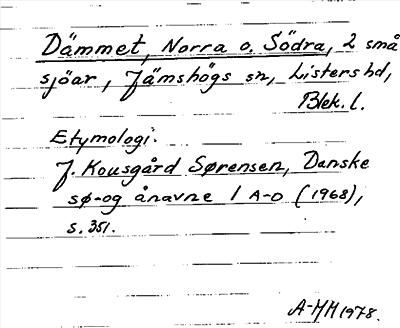 Dämmet, Norra o. Södra, 2 små
sjöar, Jämshögs sn, Listers hd,
Blek. l.
Etymologi.
J. Kousgård Sørensen, Danske
sø- og ånavne 1 A-D (1968),
s. 351.
A-MH 1978.